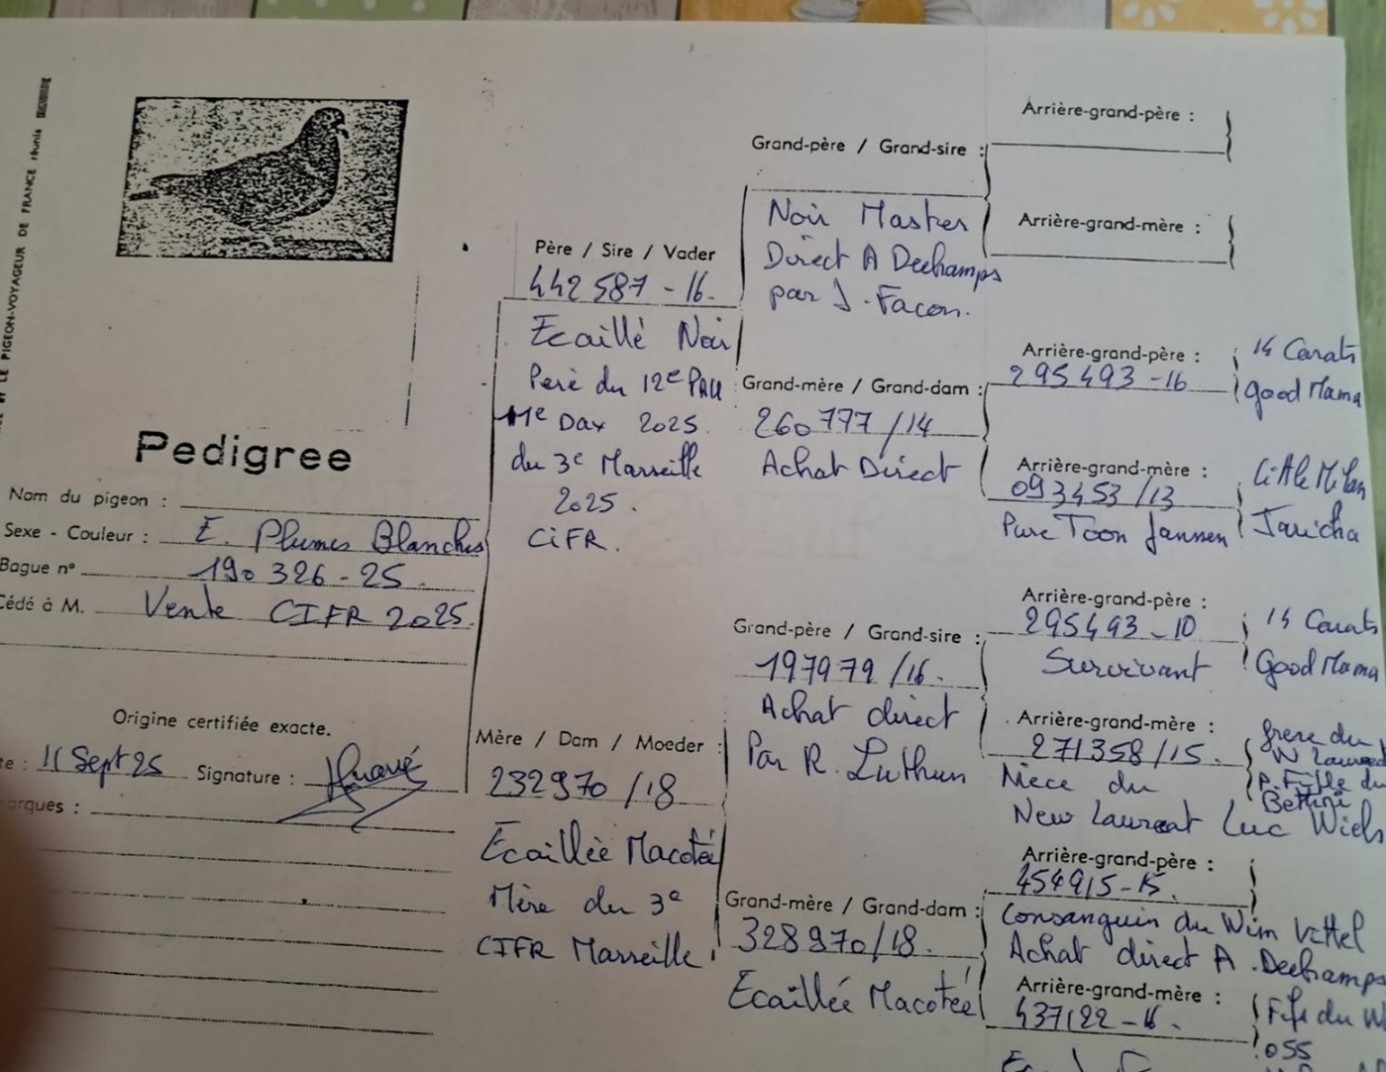 LE PIGEON-VOYAGEUR DE FRANCE réunis
Pedigree
Nom du pigeon :
Sexe - Couleur : E. Plumes Blanches
Bague n° 190 326 - 25
Cédé à M. Vente CIFR 2025
Origine certifiée exacte.
te : 11 Sept 25 Signature :
arques :
Père / Sire / Vader
442 587 - 16.
Ecaillé Noir
Père du 12e PAU
11e Dax 2025.
du 3e Marseille
2025.
CIFR.
Mère / Dam / Moeder :
232970 / 18
Ecaillée Macotée
Mère du 3e
CIFR Marseille
Grand-père / Grand-sire :
Noir Master
Direct A Dechamps
par J. Facon.
Grand-mère / Grand-dam :
260777 / 14
Achat Direct
Grand-père / Grand-sire :
197979 / 16.
Achat direct
Par R. Luthun
Grand-mère / Grand-dam :
328970 / 18.
Ecaillée Macotée
Arrière-grand-père :
Arrière-grand-mère :
Arrière-grand-père :
295493 - 16
14 Carats
good Mama
Arrière-grand-mère :
093453 / 13
Pure Toon Janssen
Little Milan
Janicha
Arrière-grand-père :
295493 - 10
Survivant
14 Carats
Good Mama
Arrière-grand-mère :
271358 / 15.
Nièce du
New Laureat Luc Wiels
frere du
N Laureat
P. Fille du
Bettini
Arrière-grand-père :
454915 - 15.
Consanguin du Wim Vittel
Achat direct A. Dechamps
Arrière-grand-mère :
437122 - 16.
du W
055